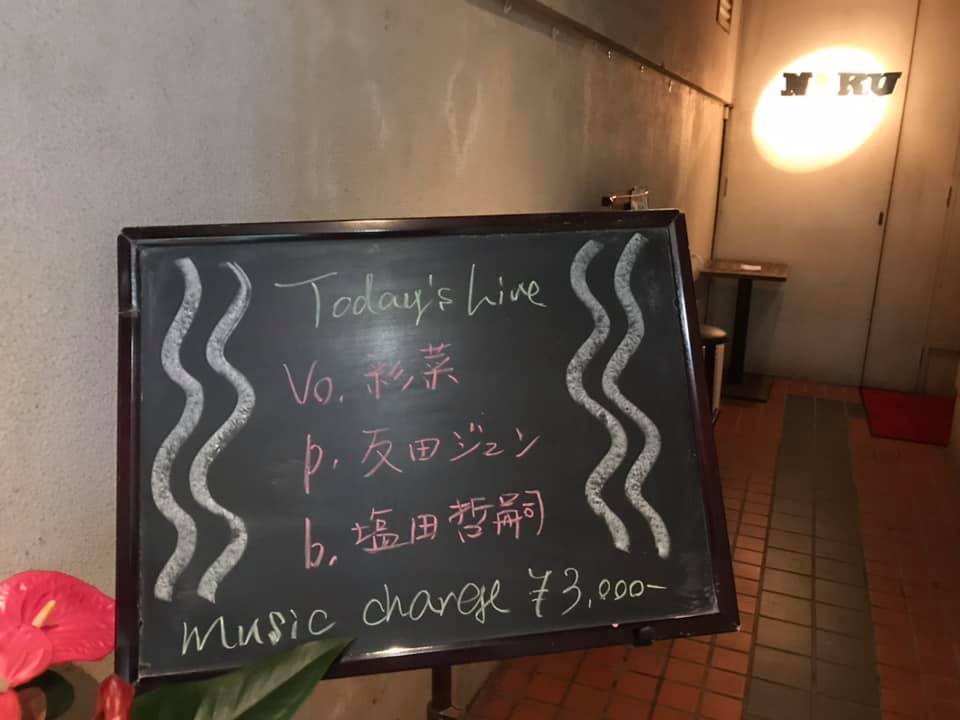 Today's Live
Vo. 彩菜
p. 反田ジュン
b. 塩田哲嗣
music charge ¥3,000-